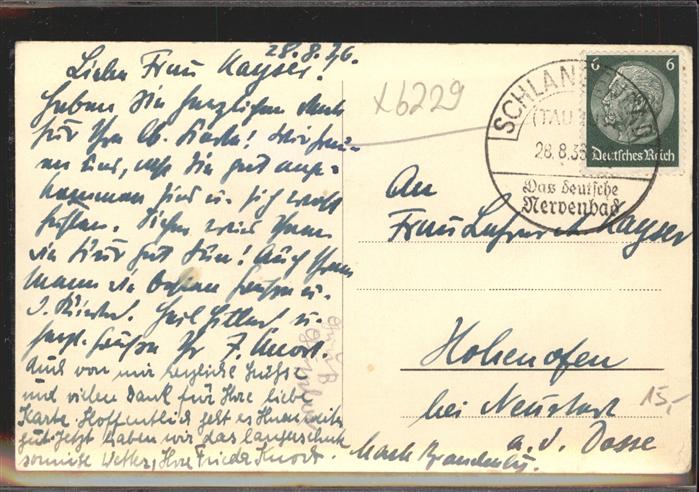 28.8.36.
Liebe Frau Kayser!
Haben Sie herzlichen Dank
für Ihre lb. Karte! Wir freu-
en uns, daß Sie gut ange-
kommen sind u. sich wohl
fühlen. Sicher wird Ihnen
die Kur gut tun! Auch Ihrem
Mann die besten Grüße u.
d. Kindern. Heil Hitler! u.
herzl. Grüße Ihr F. Knort.
Auch von mir herzliche Grüße
und vielen Dank für Ihre liebe
Karte. Hoffentlich geht es Ihnen weiter
gut. Jetzt haben wir das langersehnte
sonnige Wetter, Ihre Frieda Knort.
x6229
SCHLANGENBAD
(TAUNUS)
28.8.36
Das deutsche
Nervenbad
6 6
Deutsches Reich
An
Frau Kayser
Hohenofen
bei Neustadt
a. d. Dosse
Mark Brandenburg.
15,-